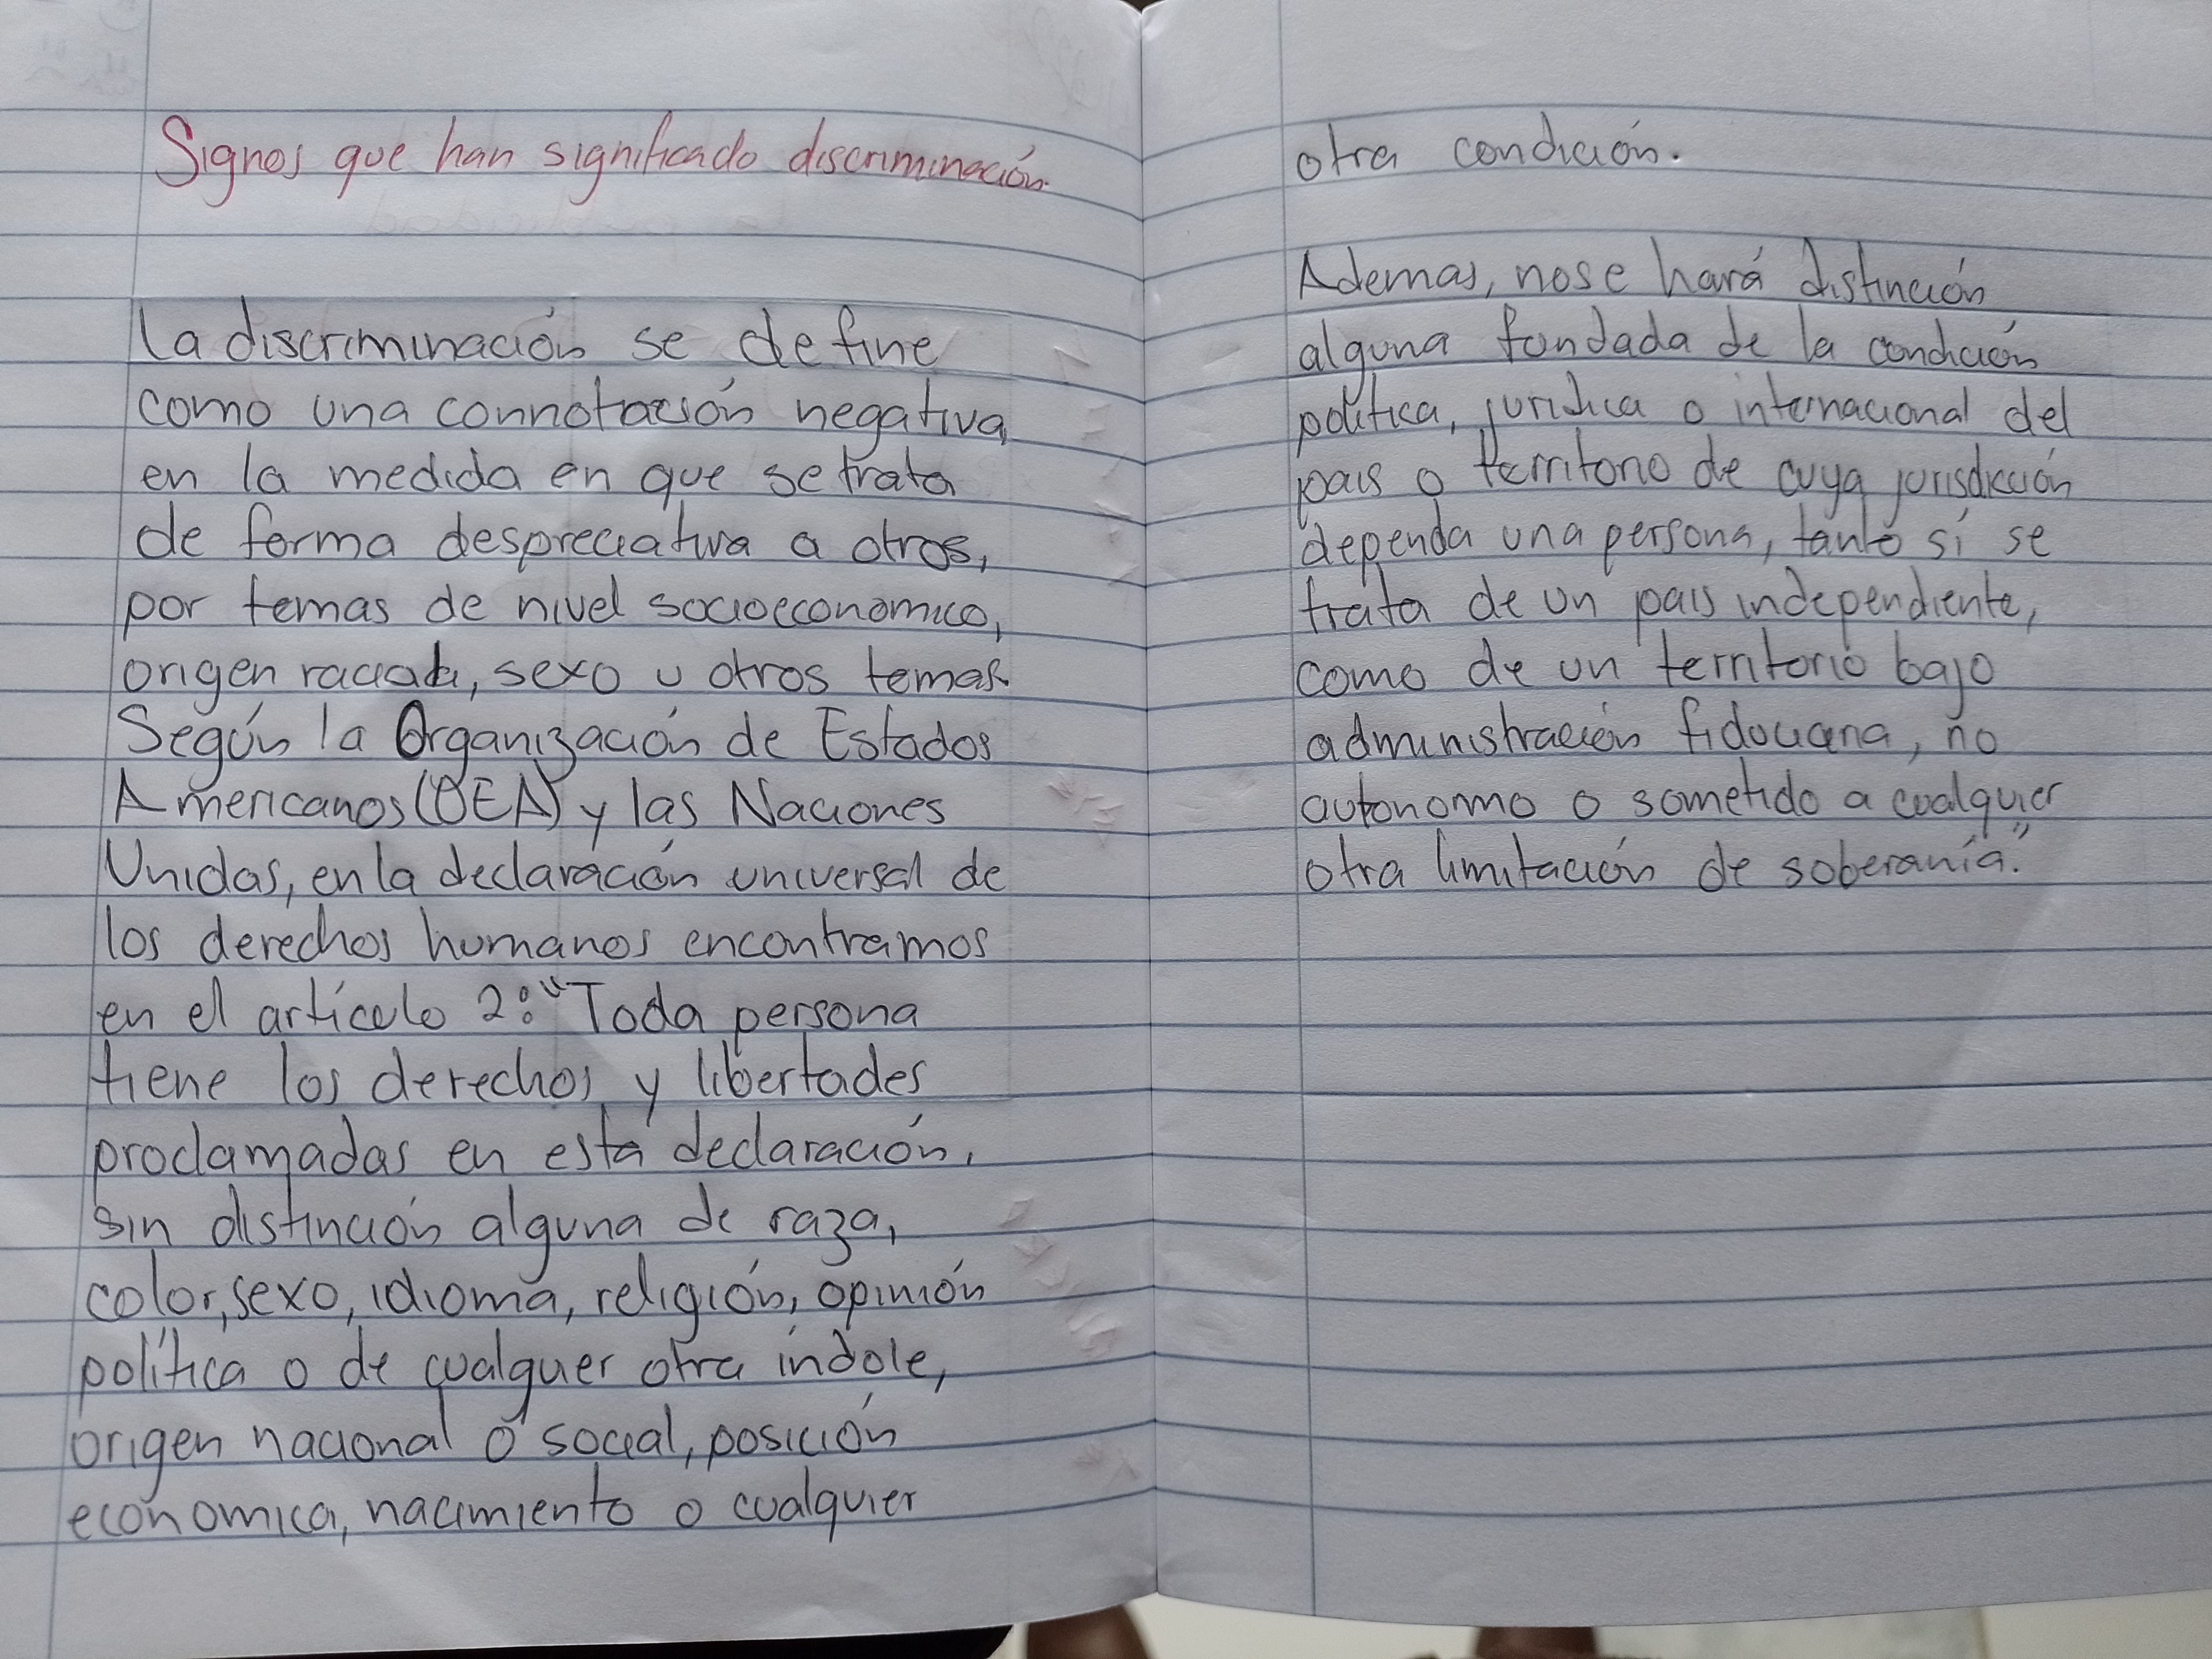 Signos que han significado discriminación.
La discriminación se define
como una connotación negativa,
en la medida en que se trata
de forma despreciativa a otros,
por temas de nivel socioeconomico,
origen racial, sexo u otros temas.
Según la Organización de Estados
Americanos (OEA) y las Naciones
Unidas, en la declaración universal de
los derechos humanos encontramos
en el artículo 2: "Toda persona
tiene los derechos y libertades
proclamadas en esta declaración,
sin distinción alguna de raza,
color, sexo, idioma, religión, opinión
política o de cualquer otra índole,
origen nacional o social, posición
economica, nacimiento o cualquier
otra condición.
Ademas, no se hará distinción
alguna fundada de la condición
política, juridica o internacional del
pais o territorio de cuya jurisdicción
dependa una persona, tanto si se
trata de un pais independiente,
como de un territorio bajo
administración fiduciaria, no
autonomo o sometido a cualquier
otra limitación de soberanía."